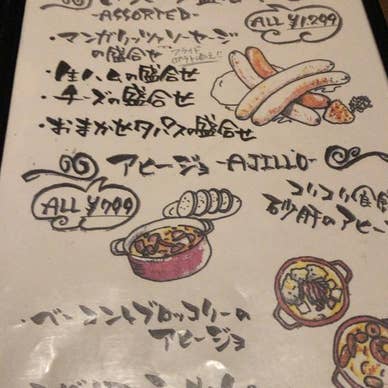 -ASSORTED-
ALL ¥1,299
・マンガリッツァソーセージ
の盛合せ
・生ハムの盛合せ
・チーズの盛合せ
・おまかせタパスの盛合せ
アヒージョ -AJILLO-
ALL ¥799
コリコリ食
砂肝のアヒー
・ベーコンとブロッコリーの
アヒージョ